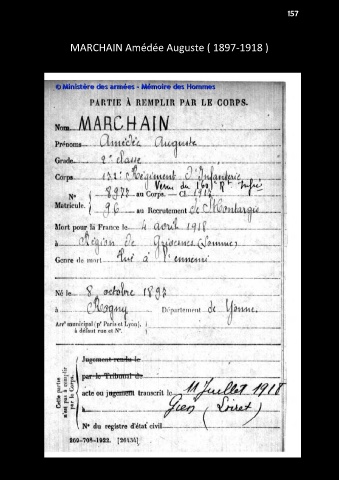 157
MARCHAIN Amédée Auguste ( 1897-1918 )
© Ministère des armées - Mémoire des Hommes
PARTIE À REMPLIR PAR LE CORPS.
Nom MARCHAIN
Prénoms Amédée Auguste
Grade 2e classe
Corps 132e Régiment d'Infanterie
Venu du
N° 8977 au Corps. — Cl 1917
Matricule. 96 au Recrutement de Montargis
Mort pour la France le 4 avril 1918
à Région de Grivesnes (Somme)
Genre de mort Tué à l'ennemi
Né le 8 octobre 1897
à Rogny Département de Yonne
Arrt municipal (pr Paris et Lyon), à défaut rue et N°.
Cette partie n'est pas à remplir par le Corps.
Jugement rendu le
par le Tribunal de
acte ou jugement transcrit le 11 Juillet 1918
à Gien (Loiret)
N° du registre d'état civil
269-708-1922. [26434]